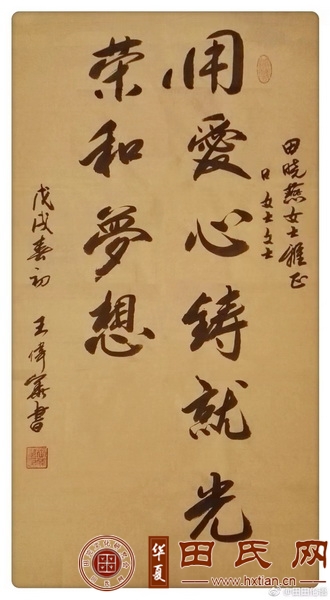 田晓燕女士雅正
用愛心鑄就光
荣和夢想
戊戌春初
王偉書
华夏
田氏网
www.hxtian.cn